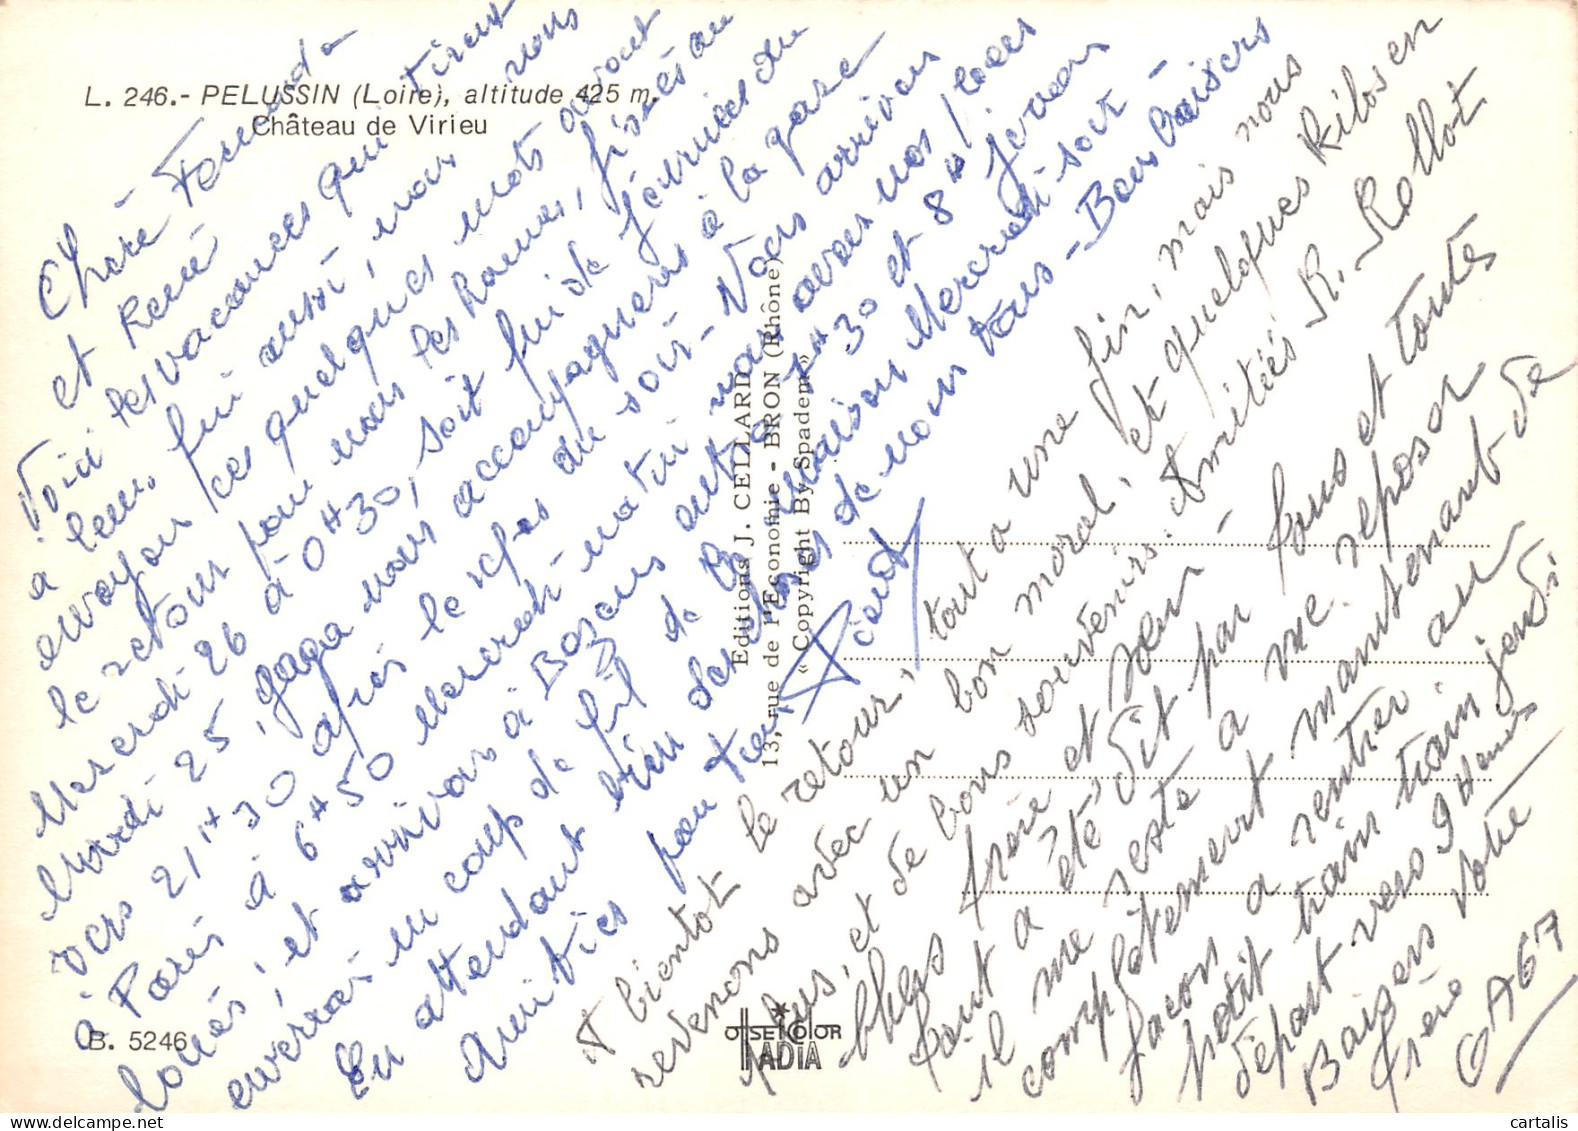 L. 246.- PELUSSIN (Loire), altitude 425 m.
Château de Virieu
Chère Fernande
et René
Voici les vacances qui tirent
a leur fin aussi, nous vous
envoyons ces quelques mots avant
le retour pour nous les Rames, fixées au
Mercredi 26 à 0H30, soit fin de journée du
Mardi 25, gaga nous accompagnera à la gare
vers 21H30 après le repas du soir - Nous arrivons
à Paris à 6H50 Mercredi matin nous avons nos places
louées, et arrivons à Bozons entre 7H30 et 8H Jivan
enverrai un coup de fil de la maison Mercredi soir -
En attendant bien des choses de nous tous - Bons baisers
Amitiés pour toi
A bientot le retour, tout a une fin, mais nous
revenons avec un bon moral, et quelques kilos en
plus, et de bons souvenirs. Amitiés R. Rollot
Chers frère et sœur -
tout a été dit par tous et toutes
il me reste a me reposer
complètement maintenant de
façon a rentrer au
petit train train jeudi
départ vers 9 Heures
Baisers votre
frère
GA67
Editions J. CELLARD
13, rue de l'Economie - BRON (Rhône)
« Copyright By Spadem »
B. 5246
OFFSETCOLOR
IADIA
cartalis